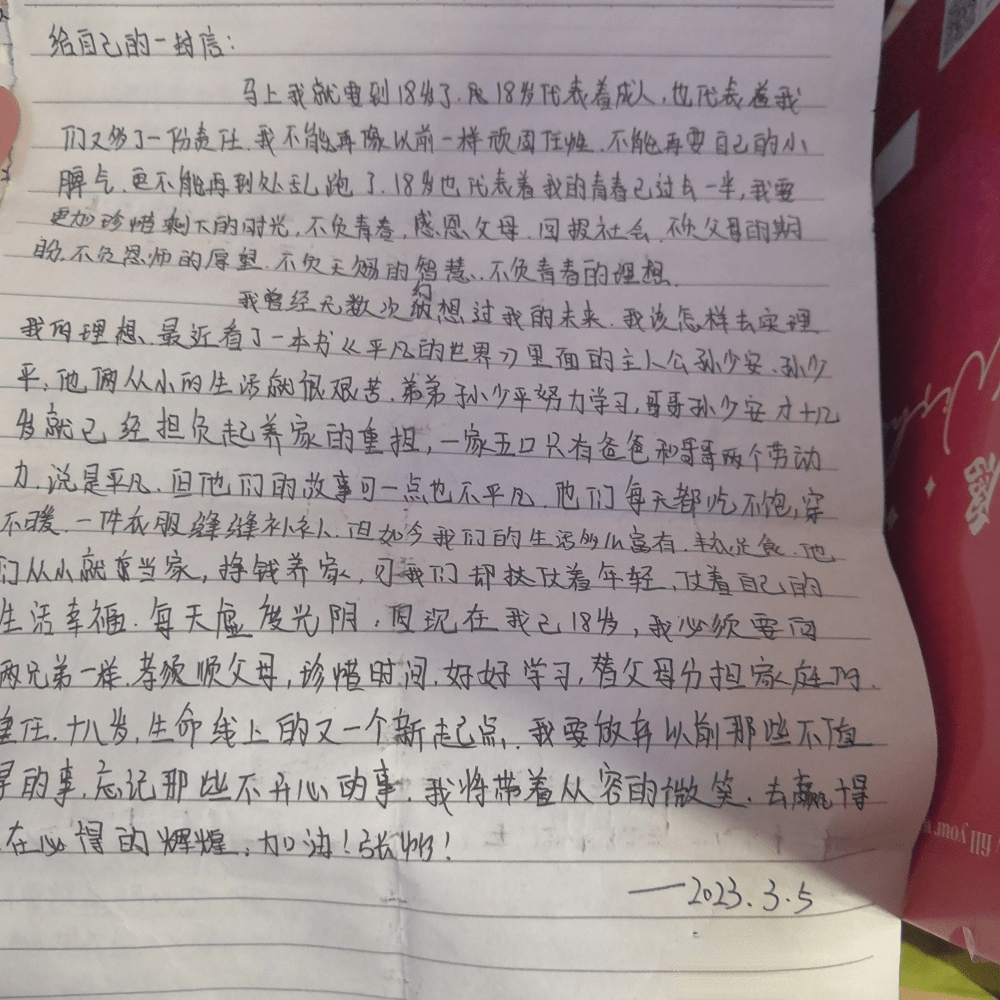 给自己的一封信:
马上我就要到18岁了.18岁代表着成人,也代表着我
们又多了一份责任.我不能再像以前一样顽固任性.不能再耍自己的小
脾气.更不能再到处乱跑了.18岁也代表着我的青春已过去一半,我要
更加珍惜剩下的时光,不负青春,感恩父母.回报社会.不负父母的期
盼.不负恩师的厚望.不负天赐的智慧、不负青春的理想.
我曾经无数次幻想过我的未来.我该怎样去实理
我的理想、最近看了一本书《平凡的世界》里面的主人公孙少安、孙少
平,他俩从小的生活就很艰苦.弟弟孙少平努力学习,哥哥孙少安才十几
岁就已经担负起养家的重担,一家五口只有爸爸和哥哥两个劳动
力.说是平凡.但他们的故事可一点也不平凡.他们每天都吃不饱,穿
不暖.一件衣服缝缝补补.但如今我们的生活富有.丰衣足食.他
们从小就当家,挣钱养家,可我们却仗着年轻,仗着自己的
生活幸福.每天虚度光阴.但现在我已18岁,我必须要向
两兄弟一样.孝顺父母,珍惜时间.好好学习,替父母分担家庭的
重任.十八岁,生命线上的又一个新起点.我要放弃以前那些不值
得的事.忘记那些不开心的事.我将带着从容的微笑.去赢得
在必得的辉煌.加油!张!
——2023.3.5
fill your